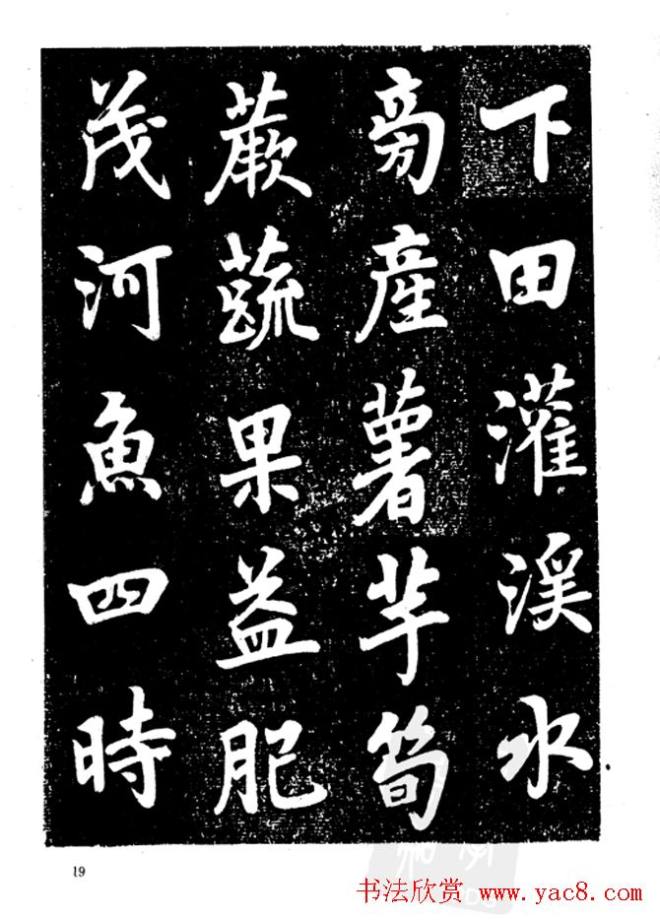 下田灌溪水
旁産薯芋筍
蕨蔬果益肥
茂河魚四時
19
书法欣赏 www.yac8.com